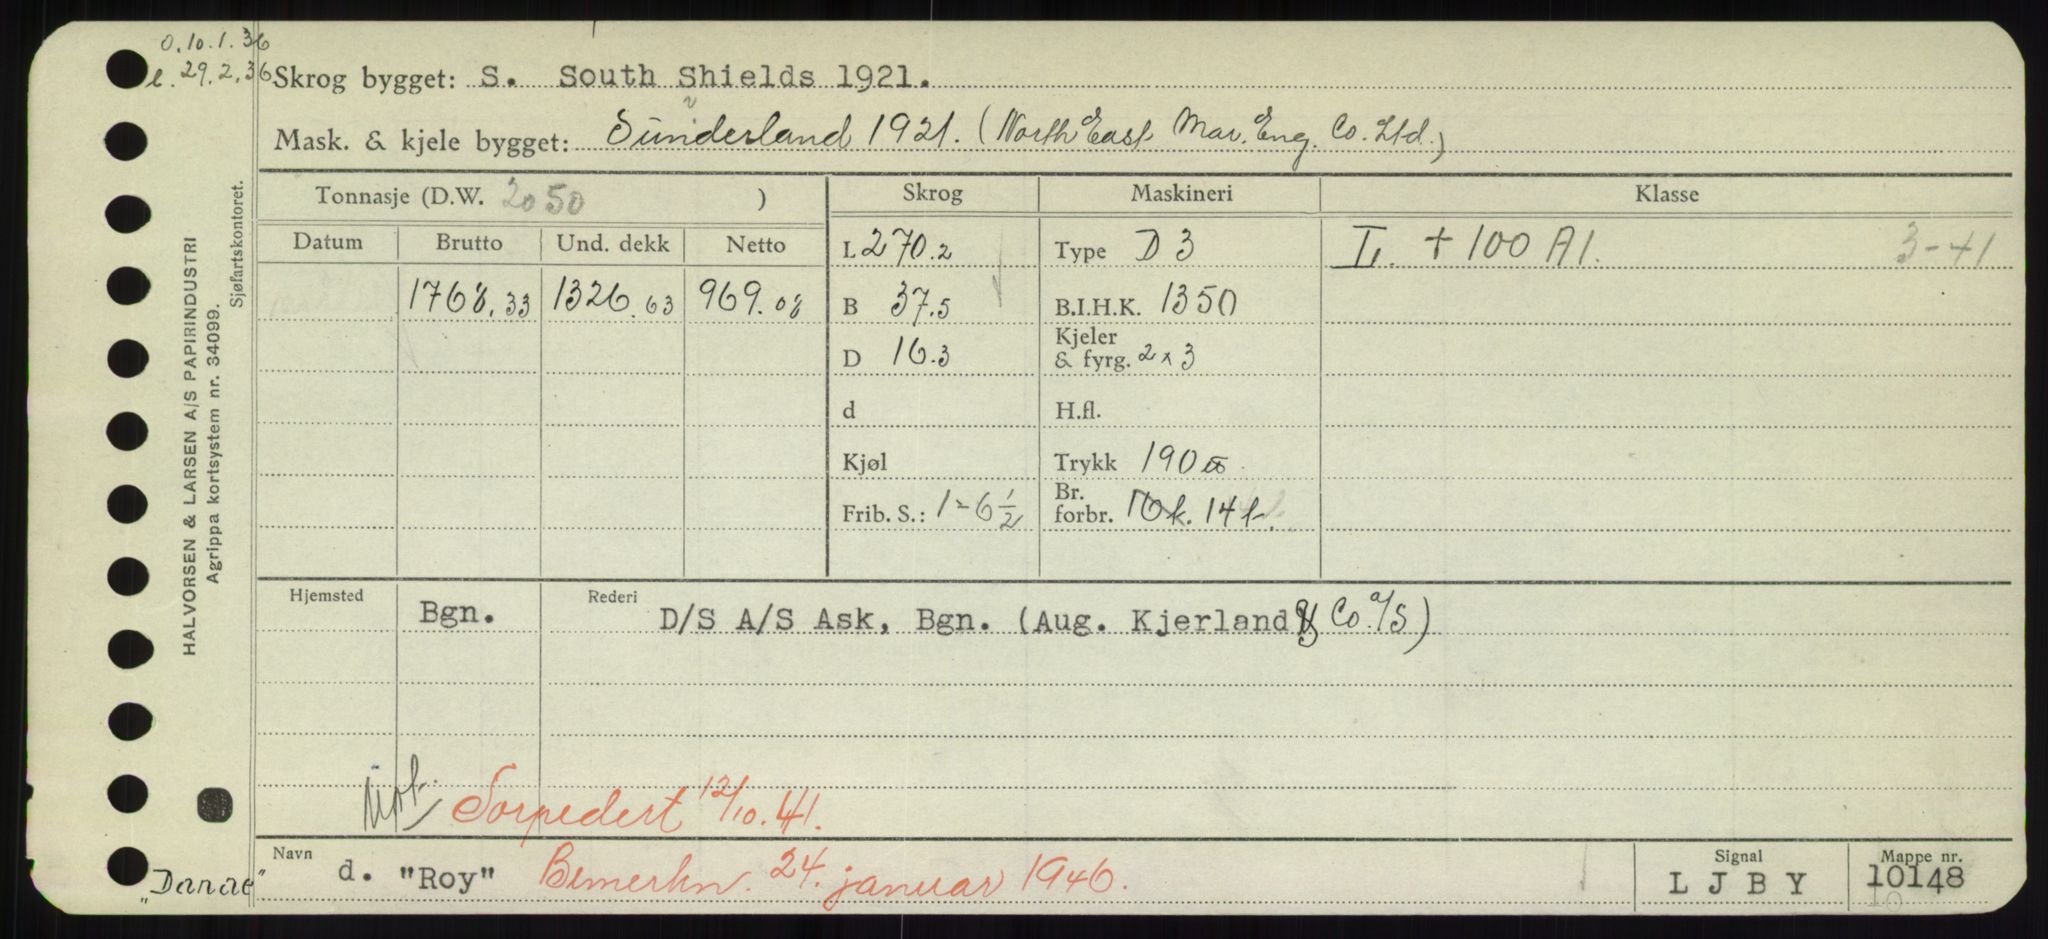 O. 10.1.36
l. 29.2.36
Skrog bygget: S. South Shields 1921.
Mask. & kjele bygget: Sunderland 1921. (North East Mar. Eng. Co. Ltd.)
Tonnasje (D.W. 2050 ) Skrog Maskineri Klasse
Datum Brutto Und. dekk Netto L 270.2 Type D 3 L. + 100 A1. 3-41
1768.33 1326.63 969.08 B 37.5 B.I.H.K. 1350
D 16.3 Kjeler & fyrg. 2 x 3
d H.fl.
Kjøl Trykk 190
Frib. S.: 1-6 1/2 Br. forbr. 10 k. 14 t.
Hjemsted Bgn. Rederi D/S A/S Ask, Bgn. (Aug. Kjerland & Co. A/S)
Torpedert 12/10.41.
Navn d. "Roy" Bemerkn. 24. januar 1946. Signal L J B Y Mappe nr. 10148
"Danae"
HALVORSEN & LARSEN A/S PAPIRINDUSTRI
Agrippa kortsystem nr. 34099.
Sjøfartskontoret.